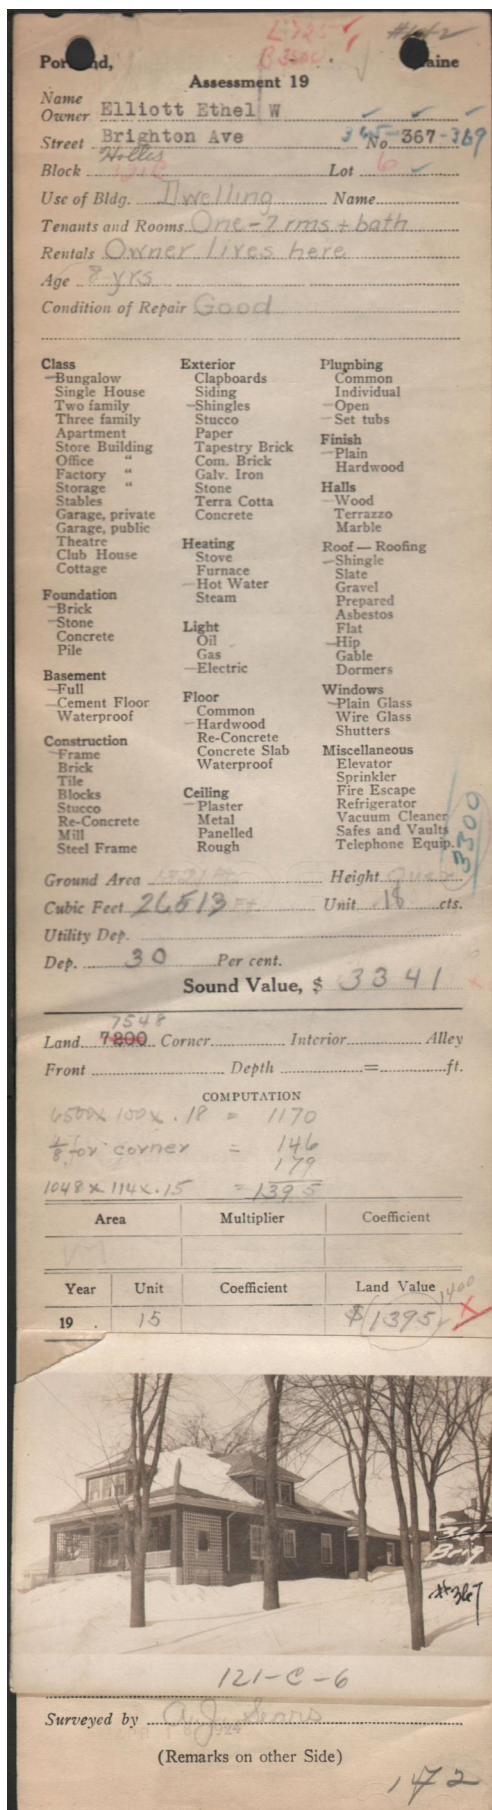 L 725
B 3500
#142
Portland, Maine
Assessment 19
Name
Owner Elliott Ethel W
Street Brighton Ave 365- No. 367-369
Hollis
Block 121 C Lot 6
Use of Bldg. Dwelling Name
Tenants and Rooms One-7 rms + bath
Rentals Owner lives here
Age 8 yrs
Condition of Repair Good
Class
Bungalow
Single House
Two family
Three family
Apartment
Store Building
Office "
Factory "
Storage "
Stables
Garage, private
Garage, public
Theatre
Club House
Cottage
Foundation
Brick
Stone
Concrete
Pile
Basement
Full
Cement Floor
Waterproof
Construction
Frame
Brick
Tile
Blocks
Stucco
Re-Concrete
Mill
Steel Frame
Exterior
Clapboards
Siding
Shingles
Stucco
Paper
Tapestry Brick
Com. Brick
Galv. Iron
Stone
Terra Cotta
Concrete
Heating
Stove
Furnace
Hot Water
Steam
Light
Oil
Gas
Electric
Floor
Common
Hardwood
Re-Concrete
Concrete Slab
Waterproof
Ceiling
Plaster
Metal
Panelled
Rough
Plumbing
Common
Individual
Open
Set tubs
Finish
Plain
Hardwood
Halls
Wood
Terrazzo
Marble
Roof — Roofing
Shingle
Slate
Gravel
Prepared
Asbestos
Flat
Hip
Gable
Dormers
Windows
Plain Glass
Wire Glass
Shutters
Miscellaneous
Elevator
Sprinkler
Fire Escape
Refrigerator
Vacuum Cleaner
Safes and Vaults
Telephone Equip.
3300
Ground Area Height
Cubic Feet 26513 Ft Unit 18 cts.
Utility Dep.
Dep. 30 Per cent.
Sound Value, $ 3341
7548
Land 7200 Corner Interior Alley
Front Depth = ft.
COMPUTATION
6500 x 100 x .18 = 1170
1/8 for corner = 146
179
1048 x 114 x .15 = 1395
Area Multiplier Coefficient
Year Unit Coefficient Land Value
1400
19 . 15 $ 1395 X
#367
121-C-6
Surveyed by A J Sears
(Remarks on other Side)
172